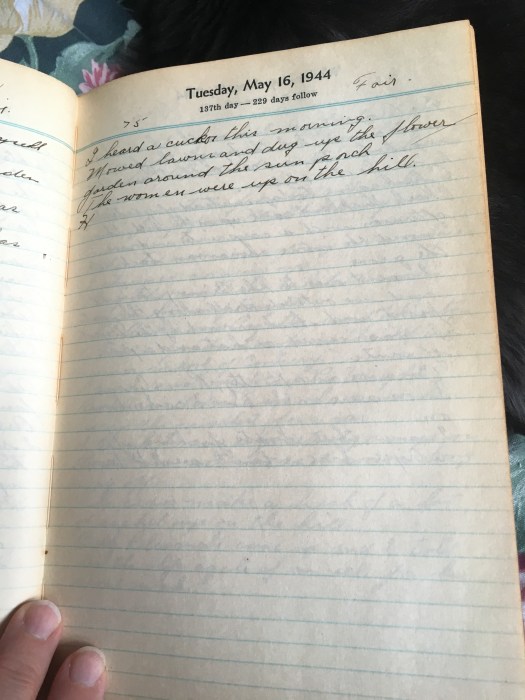 Tuesday, May 16, 1944
Fair.
137th day — 229 days follow
75
I heard a cuckoo this morning.
Mowed lawn and dug up the flower
garden around the sun porch
The women were up on the hill.
H